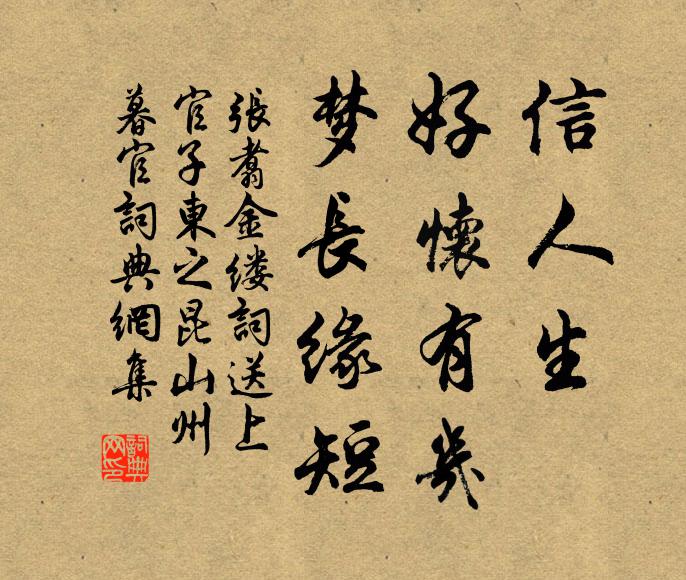 信人生
好懷有幾
梦長缘短
張翥金缕詞送上
官子東之昆山州
暮官詞典網集
詞典网印